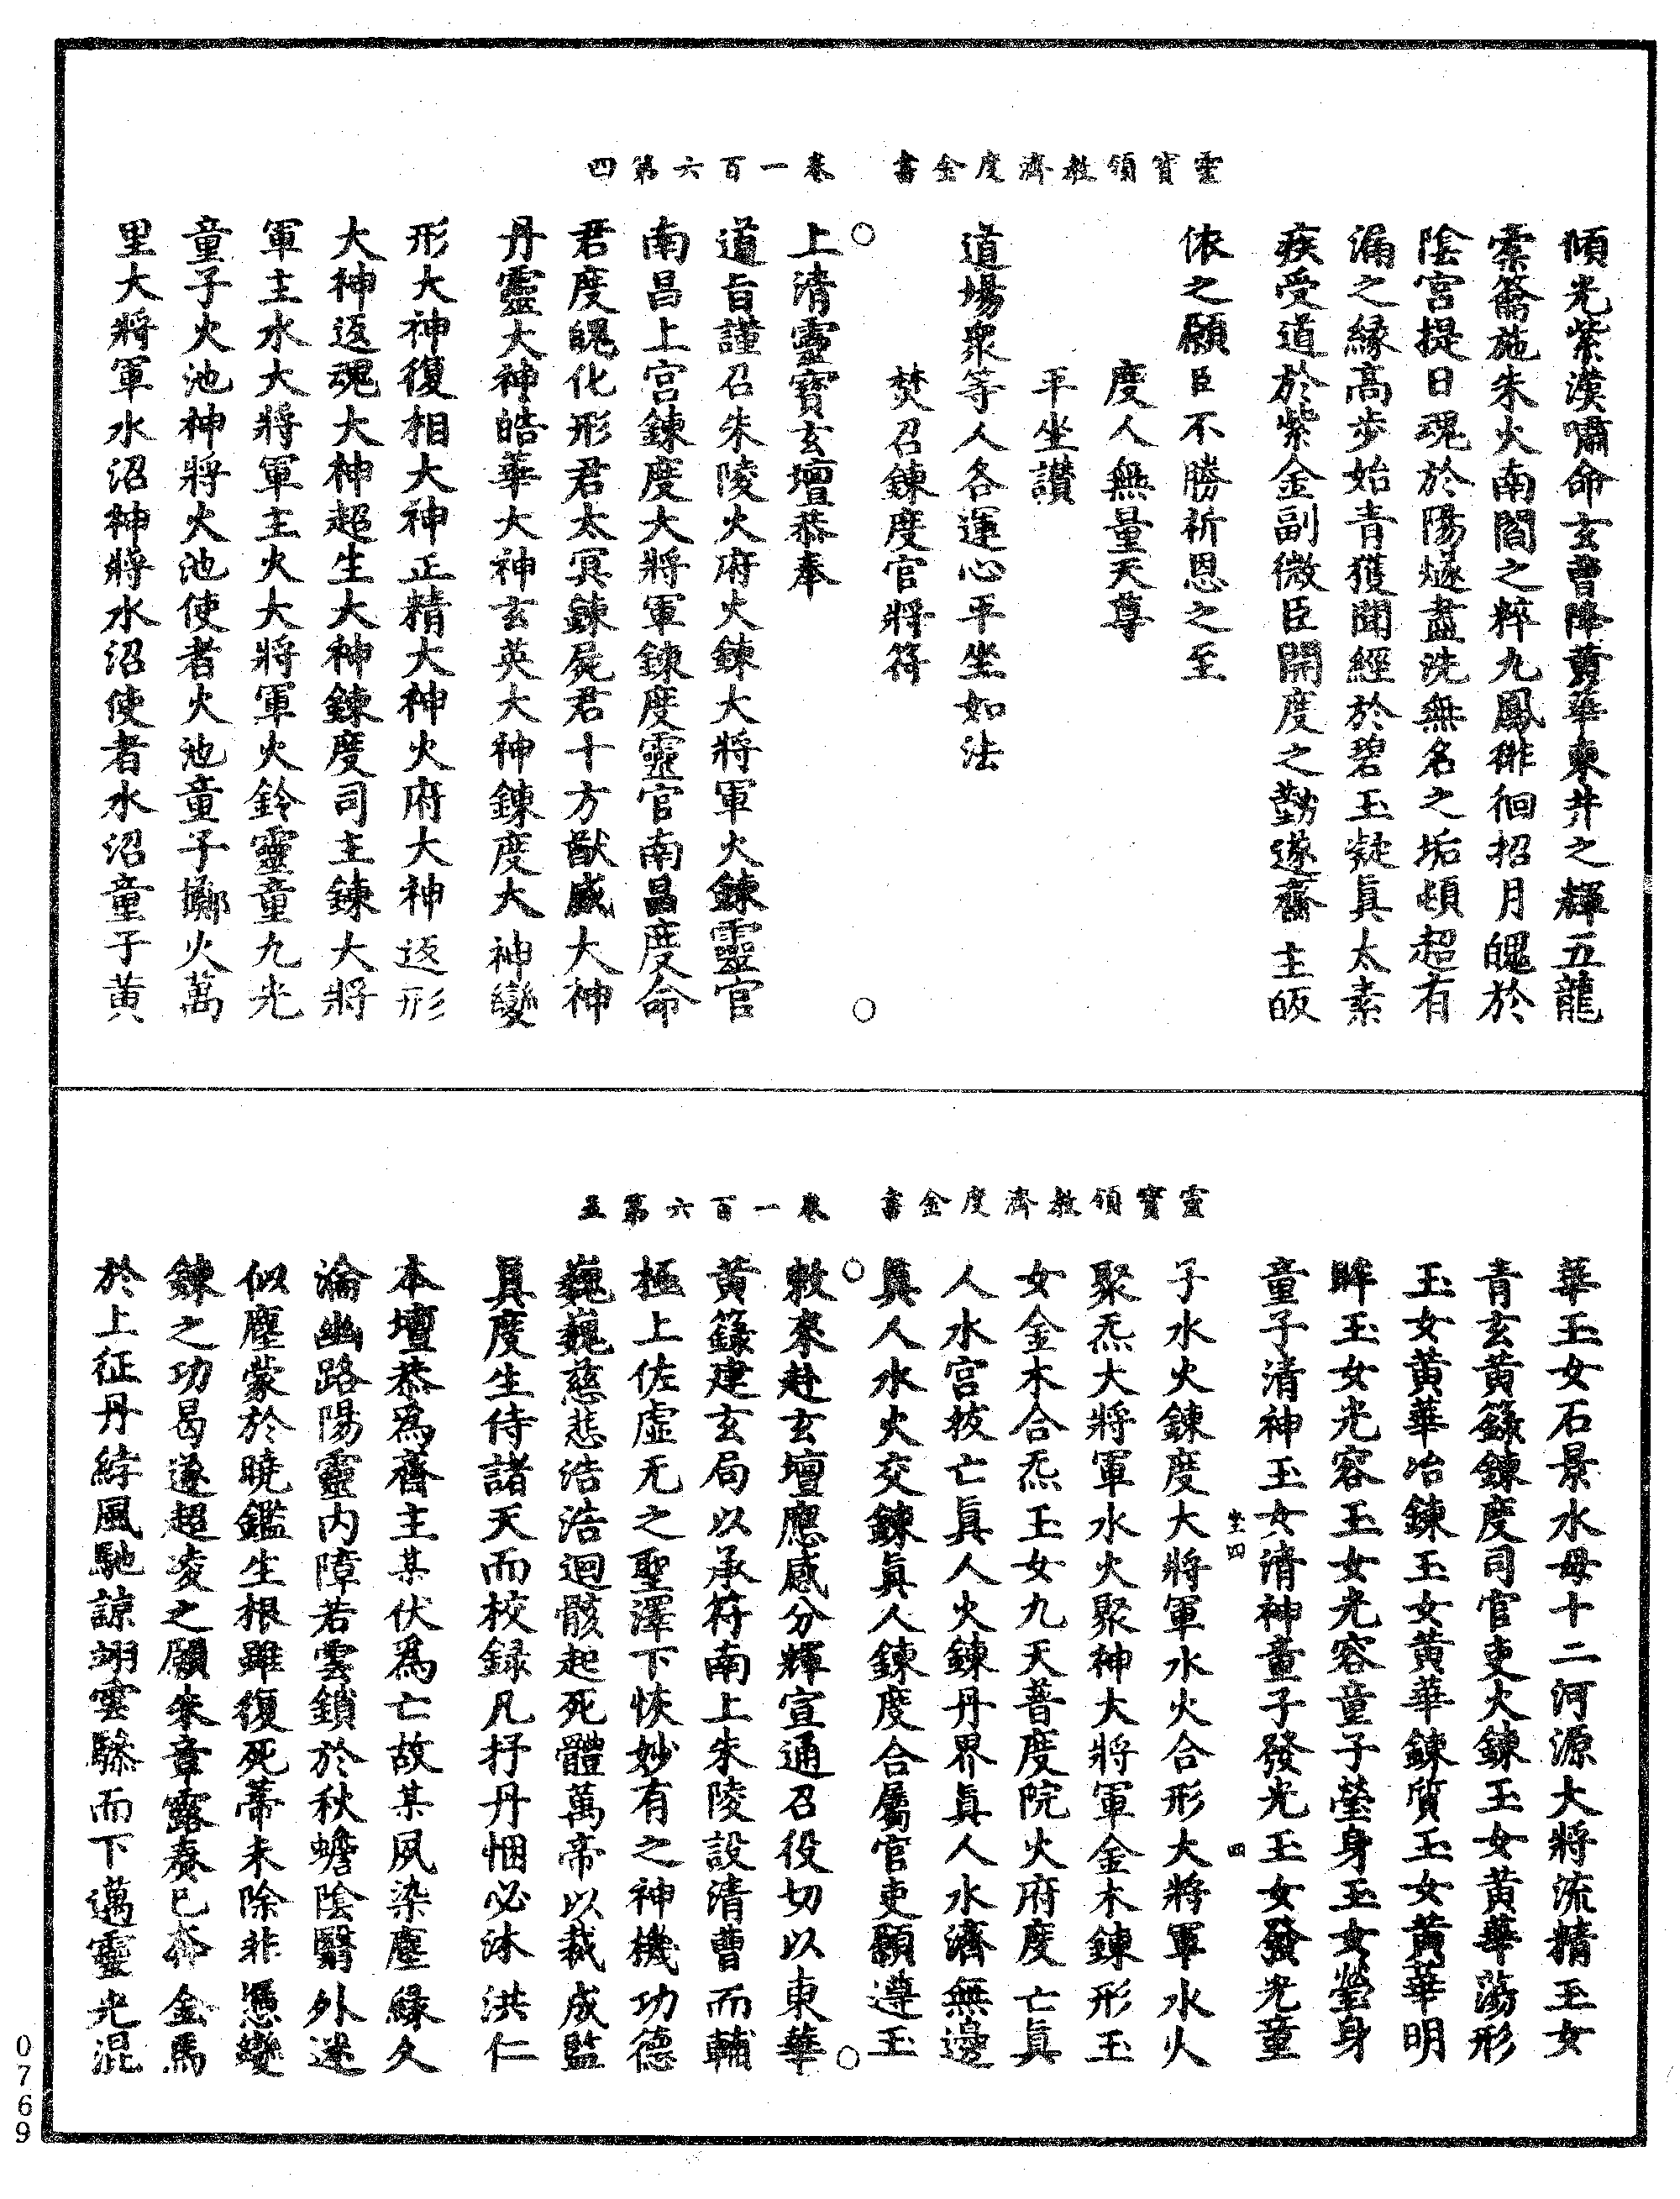 靈寶領教濟度金書　卷一百六第四
傾光紫漢嘯命玄曹降黃華東井之輝五龍
橐籥施朱火南閻之粹九鳳徘徊招月魄於
陰宮提日魂於陽燧盡洗無名之垢頓超有
漏之緣高步始青獲聞經於碧玉凝眞太素
疾受道於紫金副微臣開度之勤遂齋主皈
依之願臣不勝祈恩之至
度人無量天尊
平坐讚
道場衆等人各運心平坐如法
焚召鍊度官將符
上清靈寶玄壇恭奉
道旨謹召朱陵火府火鍊大將軍火鍊靈官
南昌上宮鍊度大將軍鍊度靈官南昌度命
君度魄化形君太冥鍊屍君十方猷威大神
丹靈大神皓華大神玄英大神鍊度大神變
形大神復相大神正精大神火府大神返形
大神返魂大神超生大神鍊度司主鍊大將
軍主水大將軍主火大將軍火鈴靈童九光
童子火池神將火池使者火池童子擲火萬
里大將軍水沼神將水沼使者水沼童子黃
靈寶領教濟度金書　卷一百六第五
華玉女石景水母十二河源大將流精玉女
青玄黃籙鍊度司官吏火鍊玉女黃華蕩形
玉女黃華冶鍊玉女黃華鍊質玉女黃華明
眸玉女光容玉女光容童子瑩身玉女瑩身
童子清神玉女清神童子發光玉女發光童
坐四　四
子水火鍊度大將軍水火合形大將軍水火
聚炁大將軍水火聚神大將軍金木鍊形玉
女金木合炁玉女九天普度院火府度亡眞
人水宮拔亡眞人火鍊丹界眞人水濟無邊
眞人水火交鍊眞人鍊度合屬官吏願遵玉
敕來赴玄壇應感分輝宣通召役切以東華
黃籙建玄局以承符南上朱陵設清曹而輔
極上佐虛无之聖澤下恢妙有之神機功德
巍巍慈悲浩浩迴骸起死體萬帝以裁成監
眞度生侍諸天而校錄凡抒丹悃必沐洪仁
本壇恭爲齋主某伏爲亡故某夙染塵緣久
淪幽路陽靈內障若雲鎖於秋蟾陰翳外迷
似塵蒙於曉鑑生根雖復死蒂未除非憑變
鍊之功曷遂超凌之願朱章露奏已奔金馬
於上征丹綍風馳諒翊雲驂而下邁靈光混
0769